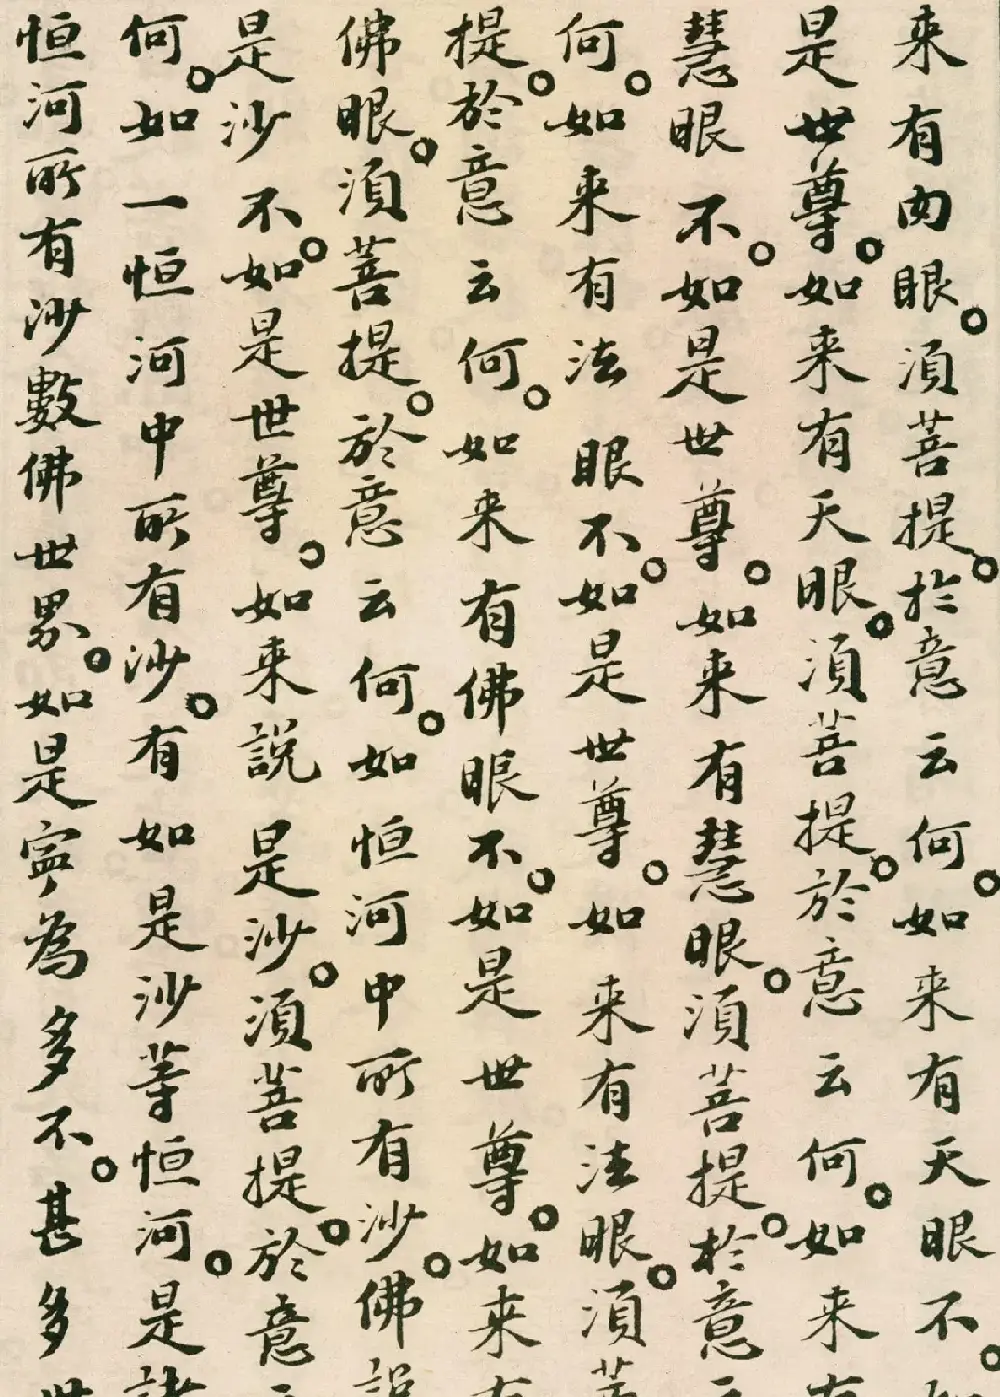 来有肉眼。須菩提。於意云何。如来有天眼不。如
是世尊。如来有天眼。須菩提。於意云何。如来有
慧眼不。如是世尊。如来有慧眼。須菩提。於意云
何。如来有法眼不。如是世尊。如来有法眼。須菩
提。於意云何。如来有佛眼不。如是世尊。如来有
佛眼。須菩提。於意云何。如恒河中所有沙。佛説
是沙不。如是世尊。如来説是沙。須菩提。於意云
何。如一恒河中所有沙。有如是沙等恒河。是諸
恒河所有沙數佛世界。如是寧為多不。甚多世